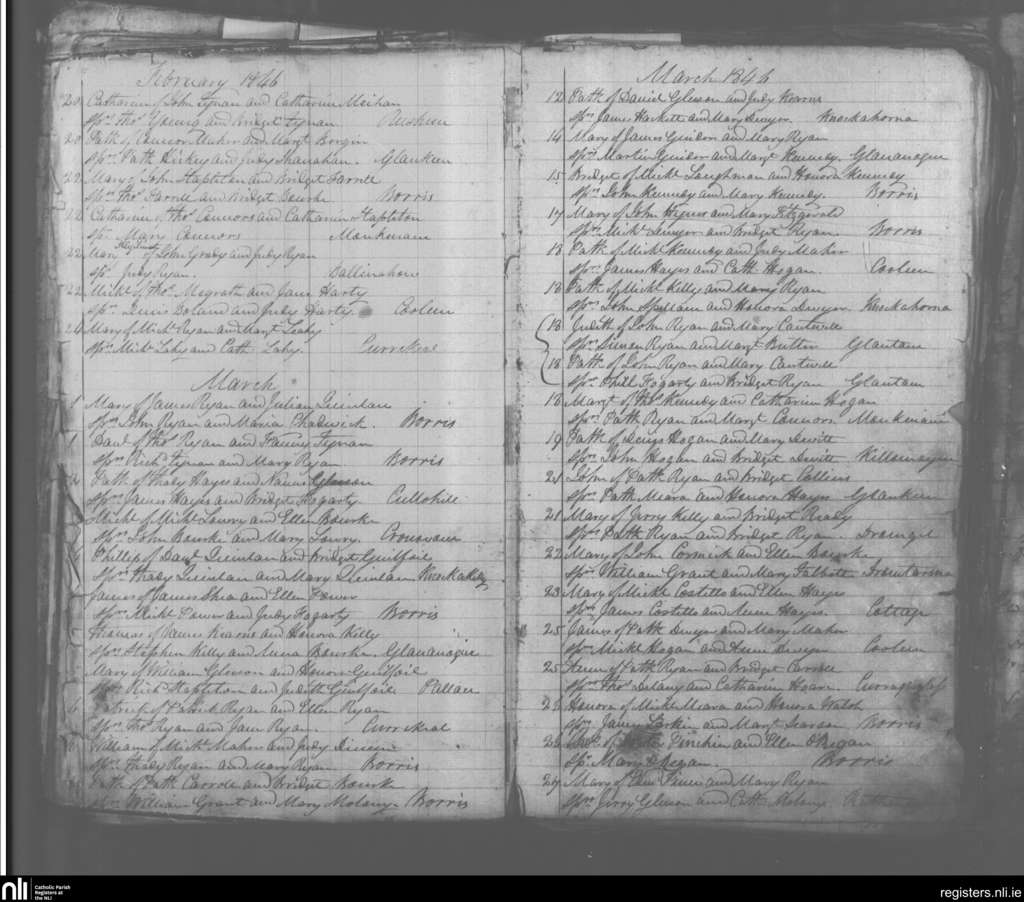 February 1846
20 Catharine of John Tynan and Catharine Meihan
Sprs Thos Young and Bridget Tynan
20 Path of Connor Maher and Margt Bergin
Sprs Path Hickey and Judy Shanahan. Glankeen
22 Mary of John Stapleton and Bridget Farrell
Sprs Thos Farrell and Bridget Bourke Borris
22 Catharine of Thos Connors and Catharine Stapleton
Spr Mary Connors
22 Mary of John Grady and Judy Ryan
Spr Judy Ryan. Ballinahow
22 Michl of Thos Megrath and Jane Harty
Sprs Denis Boland and Judy Harty. Cooleen
Mary of Michl Ryan and Margt Leahy
Sprs Michl Lahy and Cath Lahy. Currekeal
March
1 Mary of James Ryan and Julian Quinlan
Sprs John Ryan and Maria Chadwick. Borris
1 Danl of Thos Ryan and Fanny Tynan
Sprs Richd Tynan and Mary Ryan Borris
Path of Thady Hayes and Nancy Gleeson
Sprs James Hayes and Bridget Fogarty Cullohill
Michl of Michl Lowry and Ellen Bourke
Sprs John Bourke and Mary Lowry.
Philip of Danl Quinlan and Bridget Guilfoil
Sprs Thady Quinlan and Mary Quinlan
James of James Shea and Ellen Power
Sprs Michl Power and Judy Fogarty Borris
Thomas of James Kearns and Honora Kelly
Sprs Stephen Kelly and Anne Bourke. Glananague
Mary of William Gleeson and Honor Guilfoil
Sprs Richd Stapleton and Judith Guilfoil Pallas
6 Patrick of Patrick Ryan and Ellen Ryan
Sprs Thos Ryan and Jane Ryan. Currekeal
William of Michl Maher and Judy
Sprs Thady Ryan and Mary Ryan Borris
Path of Path Carroll and Bridget Bourk
Sprs William Grant and Mary Molony. Borris
March 1846
12 Path of Daniel Gleeson and Judy Kearns
Sprs James Hackett and Mary Dwyer Knockahorna
14 Mary of James Guider and Mary Ryan
Sprs Martin Guider and Margt Kennedy. Glananague
15 Bridget of Michl Loughman and Honora Kennedy
Sprs John Kennedy and Mary Kennedy. Borris
17 Mary of John Hynes and Mary Fitzgerald
Sprs Michl Dwyer and Bridget Ryan. Borris
18 Path of Michl Kennedy and Judy Maher
Sprs James Hayes and Cath Hogan. Cooleen
18 Path of Michl Kelly and Mary Ryan
Sprs John Spillane and Honora Dwyer Knockahorna
18 Judith of John Ryan and Mary Cantwell
Sprs Simon Ryan and Margt Butler Glantane
18 Path of John Ryan and Mary Cantwell
Sprs Phill Fogarty and Bridget Ryan Glantane
18 Margt of Thos Kennedy and Catharine Hogan
Sprs Path Ryan and Margt Connors
19 Path of Denis Hogan and Mary Hewitt
Sprs John Hogan and Bridget Hewitt
21 John of Path Ryan and Bridget Collins
Sprs Path Meara and Honora Hayes Glankeen
21 Mary of Jerry Kelly and Bridget Ready
Sprs Path Ryan and Bridget Ryan.
22 Mary of John Cormick and Ellen Bourke
Sprs William Grant and Mary Talbott
23 Mary of Michl Costello and Ellen Hayes
Sprs James Costello and Anne Hayes. Cottage
25 James of Path Dwyer and Mary Maher
Sprs Michl Hogan and Anne Dwyer Cooleen
25 Anne of Path Ryan and Bridget Carroll
Sprs Thos Delany and Catharine Hoare.
Honora of Michl Meara and Honora Walsh
Sprs James Larkin and Margt Borris
Thos of Finchin and Ellen O'Regan
Spr Mary O'Regan. Borris
Mary of and Mary Ryan
Sprs Jerry Gleeson and Cath Molony.
nli
Catholic Parish
Registers at
the NLI
registers.nli.ie